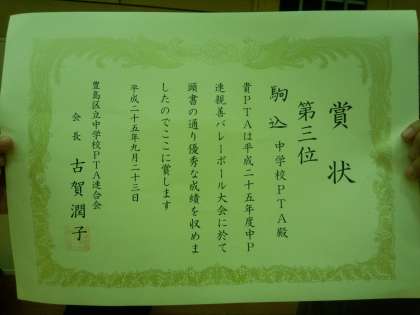 賞状
第三位
駒込中学校PTA殿
貴PTAは平成二十五年度中P
連親善バレーボール大会に於て
頭書の通り優秀な成績を収めま
したのでここに賞します
平成二十五年九月二十三日
豊島区立中学校PTA連合会
会長 古賀潤子